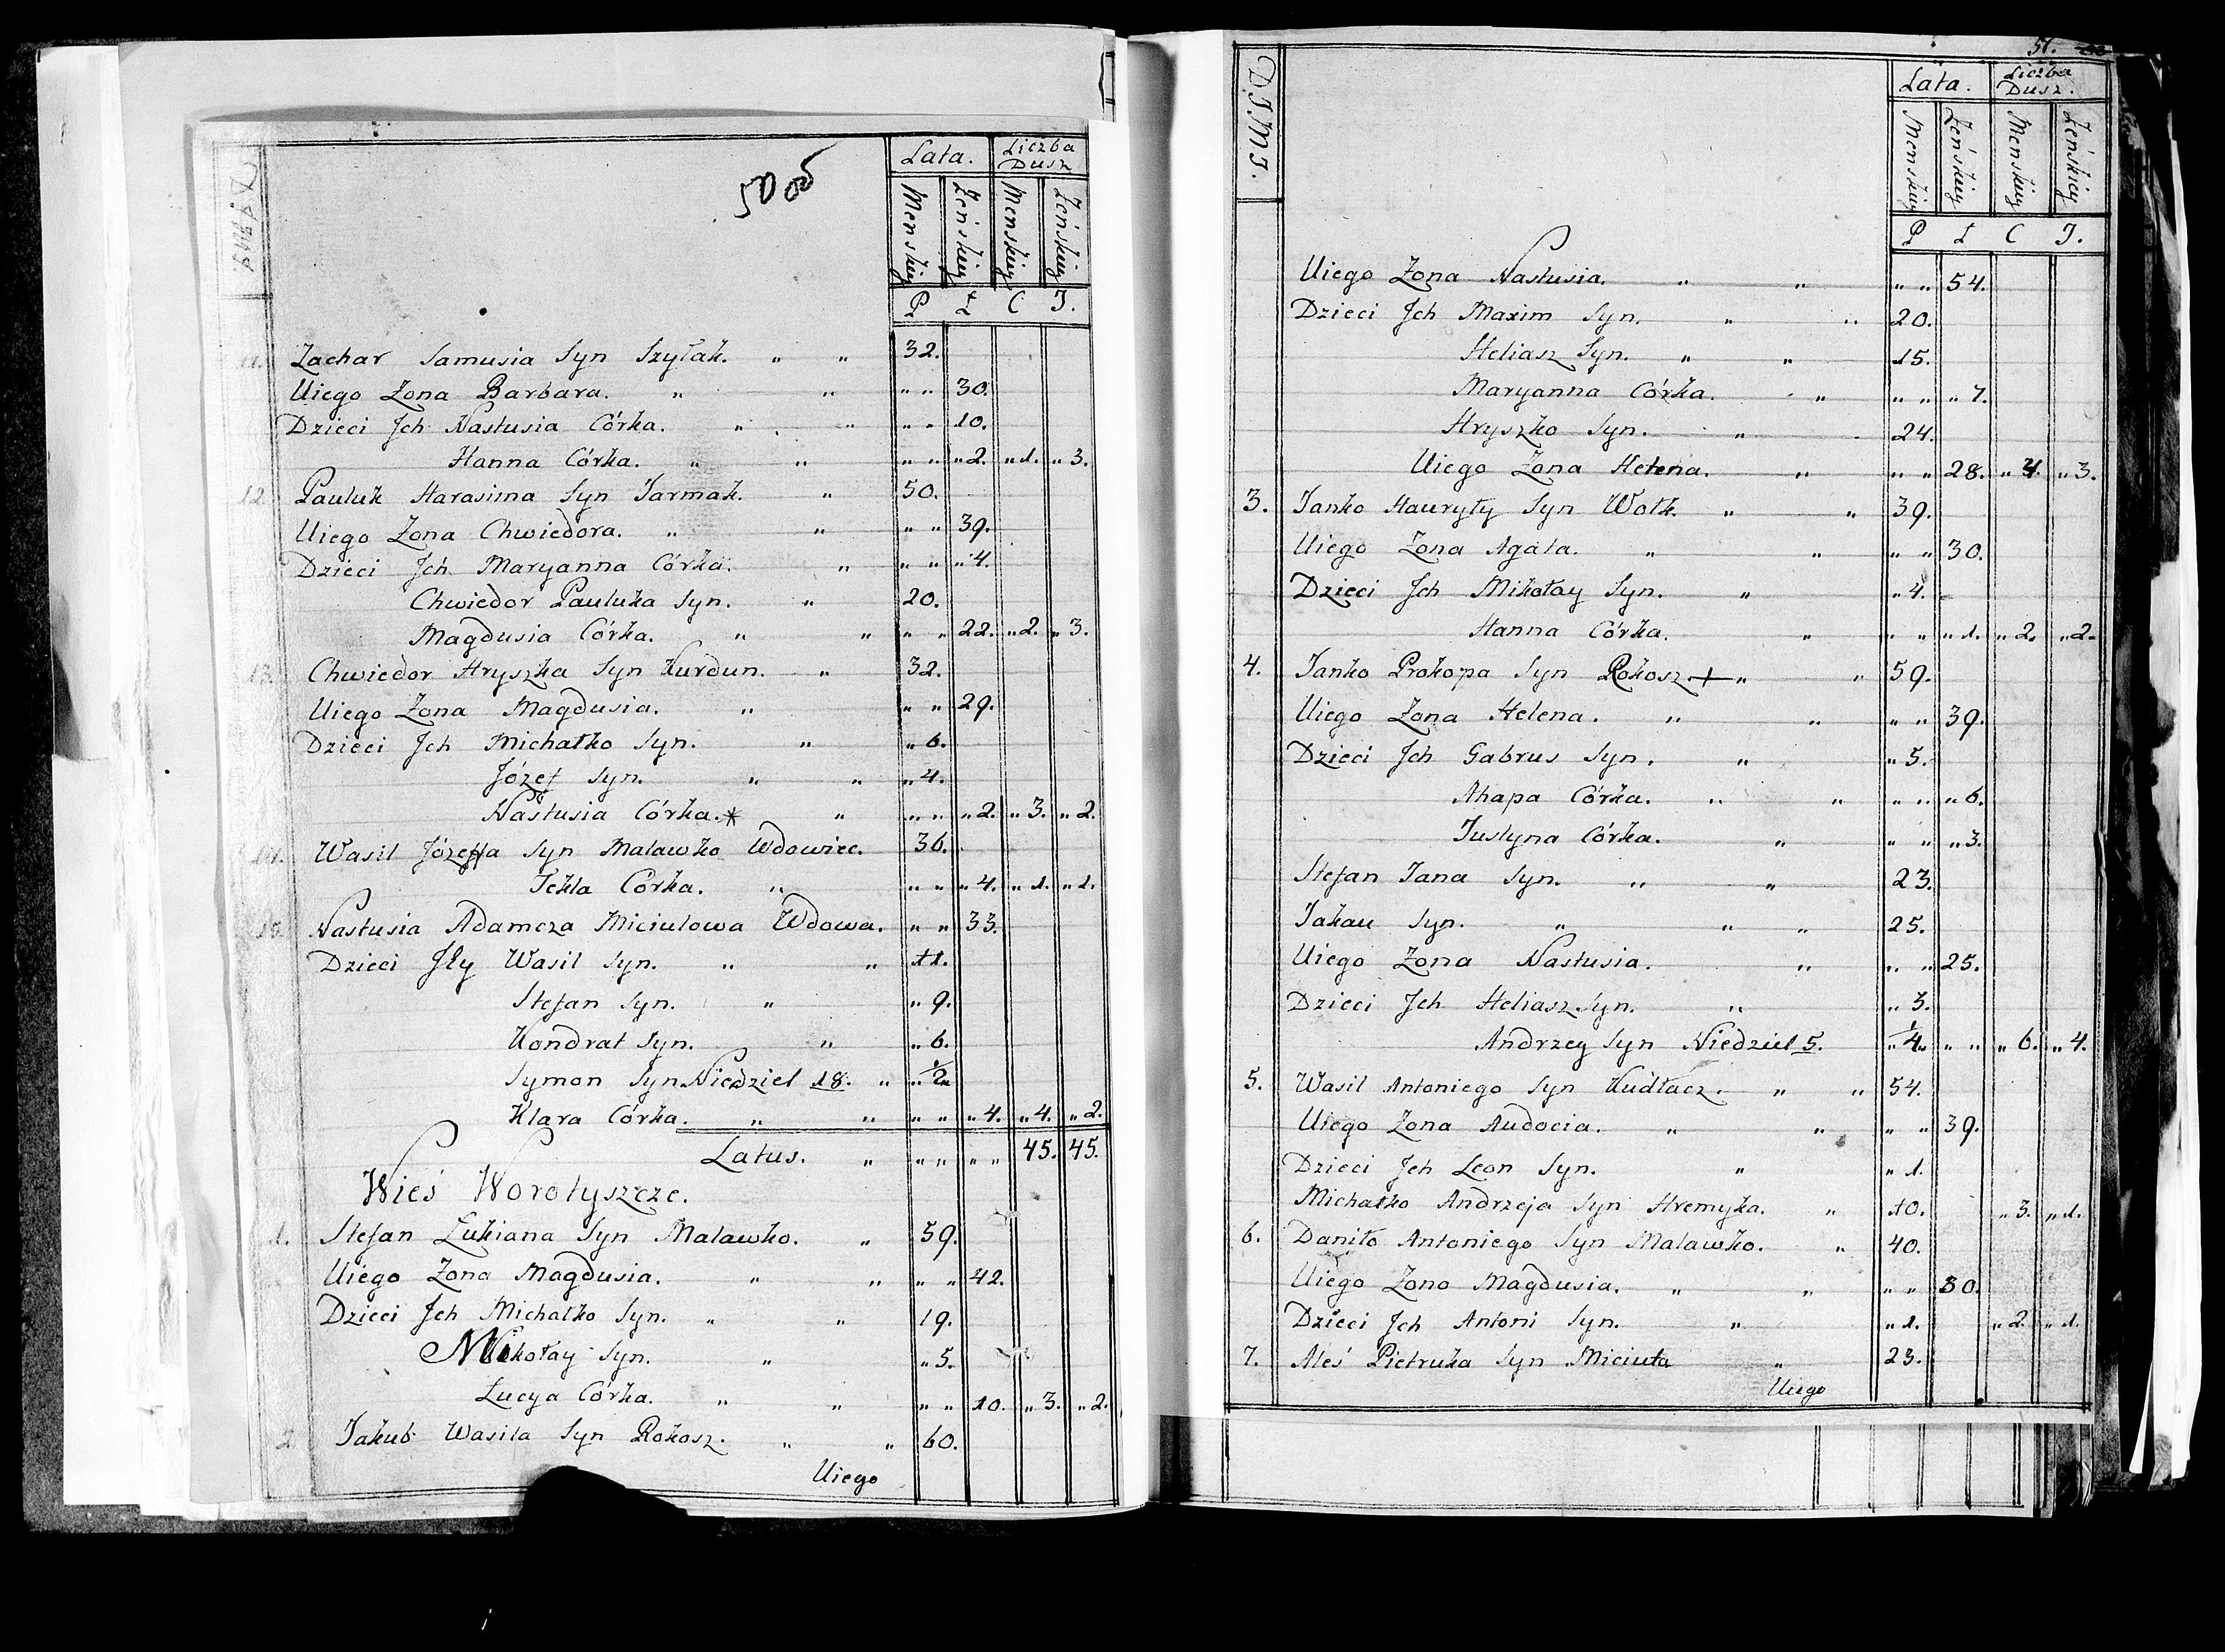 50 об
Lata. Liczba Dusz
Menskiey Żeńskiey Menskiey Żeńskiey
P Ł C J.
11. Zachar Samusia Syn Szyłak. „ „ 32.
Uiego Żona Barbara. „ „ „ „ 30.
Dzieci Jch Nastusia Córka. „ „ „ „ 10.
Hanna Córka. „ „ „ „ „ 2. „ 1. „ 3.
12. Pauluk Harasima Syn Jarmak. „ 50.
Uiego Żona Chwiedora. „ „ „ „ 39.
Dzieci Jch Maryanna Córka. „ „ „ „ 4.
Chwiedor Pauluka Syn. „ 20.
Magdusia Córka. „ „ „ „ 22. „ 2. „ 3.
13. Chwiedor Hryszka Syn Kurdun. „ 32.
Uiego Żona Magdusia. „ „ „ 29.
Dzieci Jch Michałko Syn. „ „ 6.
Józef Syn. „ „ „ 4.
Nastusia Córka. * „ „ „ „ 2. „ 3. „ 2.
14. Wasil Józefa Syn Malawko Wdowiec. 36.
Tekla Córka. „ „ „ „ 4. „ 1. „ 1.
15. Nastusia Adamcza Miciulowa Wdowa. „ „ 33.
Dzieci Jły Wasil Syn. „ „ 11.
Stefan Syn. „ „ 9.
Kondrat Syn. „ „ 6.
Symon Syn Niedziel 18. „ „ 1/2 „
Klara Córka. „ „ „ „ „ 4. „ 4. „ 2.
Latus. „ „ „ „ „ 45. 45.
Wieś Worotyszcze.
1. Stefan Łukiana Syn Malawko. „ 59.
Uiego Żona Magdusia. „ „ „ „ 42.
Dzieci Jch Michałko Syn. „ „ 19.
Mikołay Syn. „ „ 5.
Łucya Córka. „ „ „ „ 10. „ 3. „ 2.
2. Jakub Wasila Syn Rokosz. „ „ 60.
Uiego
51.
DJMJ.
Lata. Liczba Dusz.
Menskiey Żeńskiey Menskiey Żeńskiey
P Ł C J.
Uiego Żona Nastusia. „ „ „ „ 54.
Dzieci Jch Maxim Syn. „ „ 20.
Heliasz Syn. „ „ 15.
Maryanna Córka. „ „ „ „ 7.
Hryszko Syn. „ 24.
Uiego Żona Helena. „ „ „ 28. „ 4. „ 3.
3. Janko Hauryły Syn Wołk. „ „ 39.
Uiego Żona Agata. „ „ „ „ 30.
Dzieci Jch Mikołay Syn. „ „ 4.
Hanna Córka. „ „ „ „ 1. „ 2. „ 2.
4. Janko Prokopa Syn Rokosz + „ „ 59.
Uiego Żona Helena. „ „ „ „ 39.
Dzieci Jch Gabrus Syn. „ „ 5.
Ahapa Córka. „ „ „ „ „ 6.
Justyna Córka. „ „ „ „ 3.
Stefan Jana Syn. „ „ 23.
Jakau Syn. „ „ „ 25.
Uiego Żona Nastusia. „ „ „ 25.
Dzieci Jch Heliasz Syn. „ „ 3.
Andrzey Syn Niedziel 5. „ 1/4 „ „ „ „ 6. „ 4.
5. Wasil Antoniego Syn Kudłacz. „ „ 54.
Uiego Żona Audocia. „ „ „ „ 39.
Dzieci Jch Leon Syn. „ „ 1.
Michałko Andrzeja Syn Hremyka. „ 10. „ 3. „ 1.
6. Daniło Antoniego Syn Malawko. „ 40.
Uiego Żona Magdusia. „ „ „ „ 30.
Dzieci Jch Antoni Syn. „ „ 1. „ 2. „ 1.
7. Aleś Pietruka Syn Miciuła „ 23.
Uiego